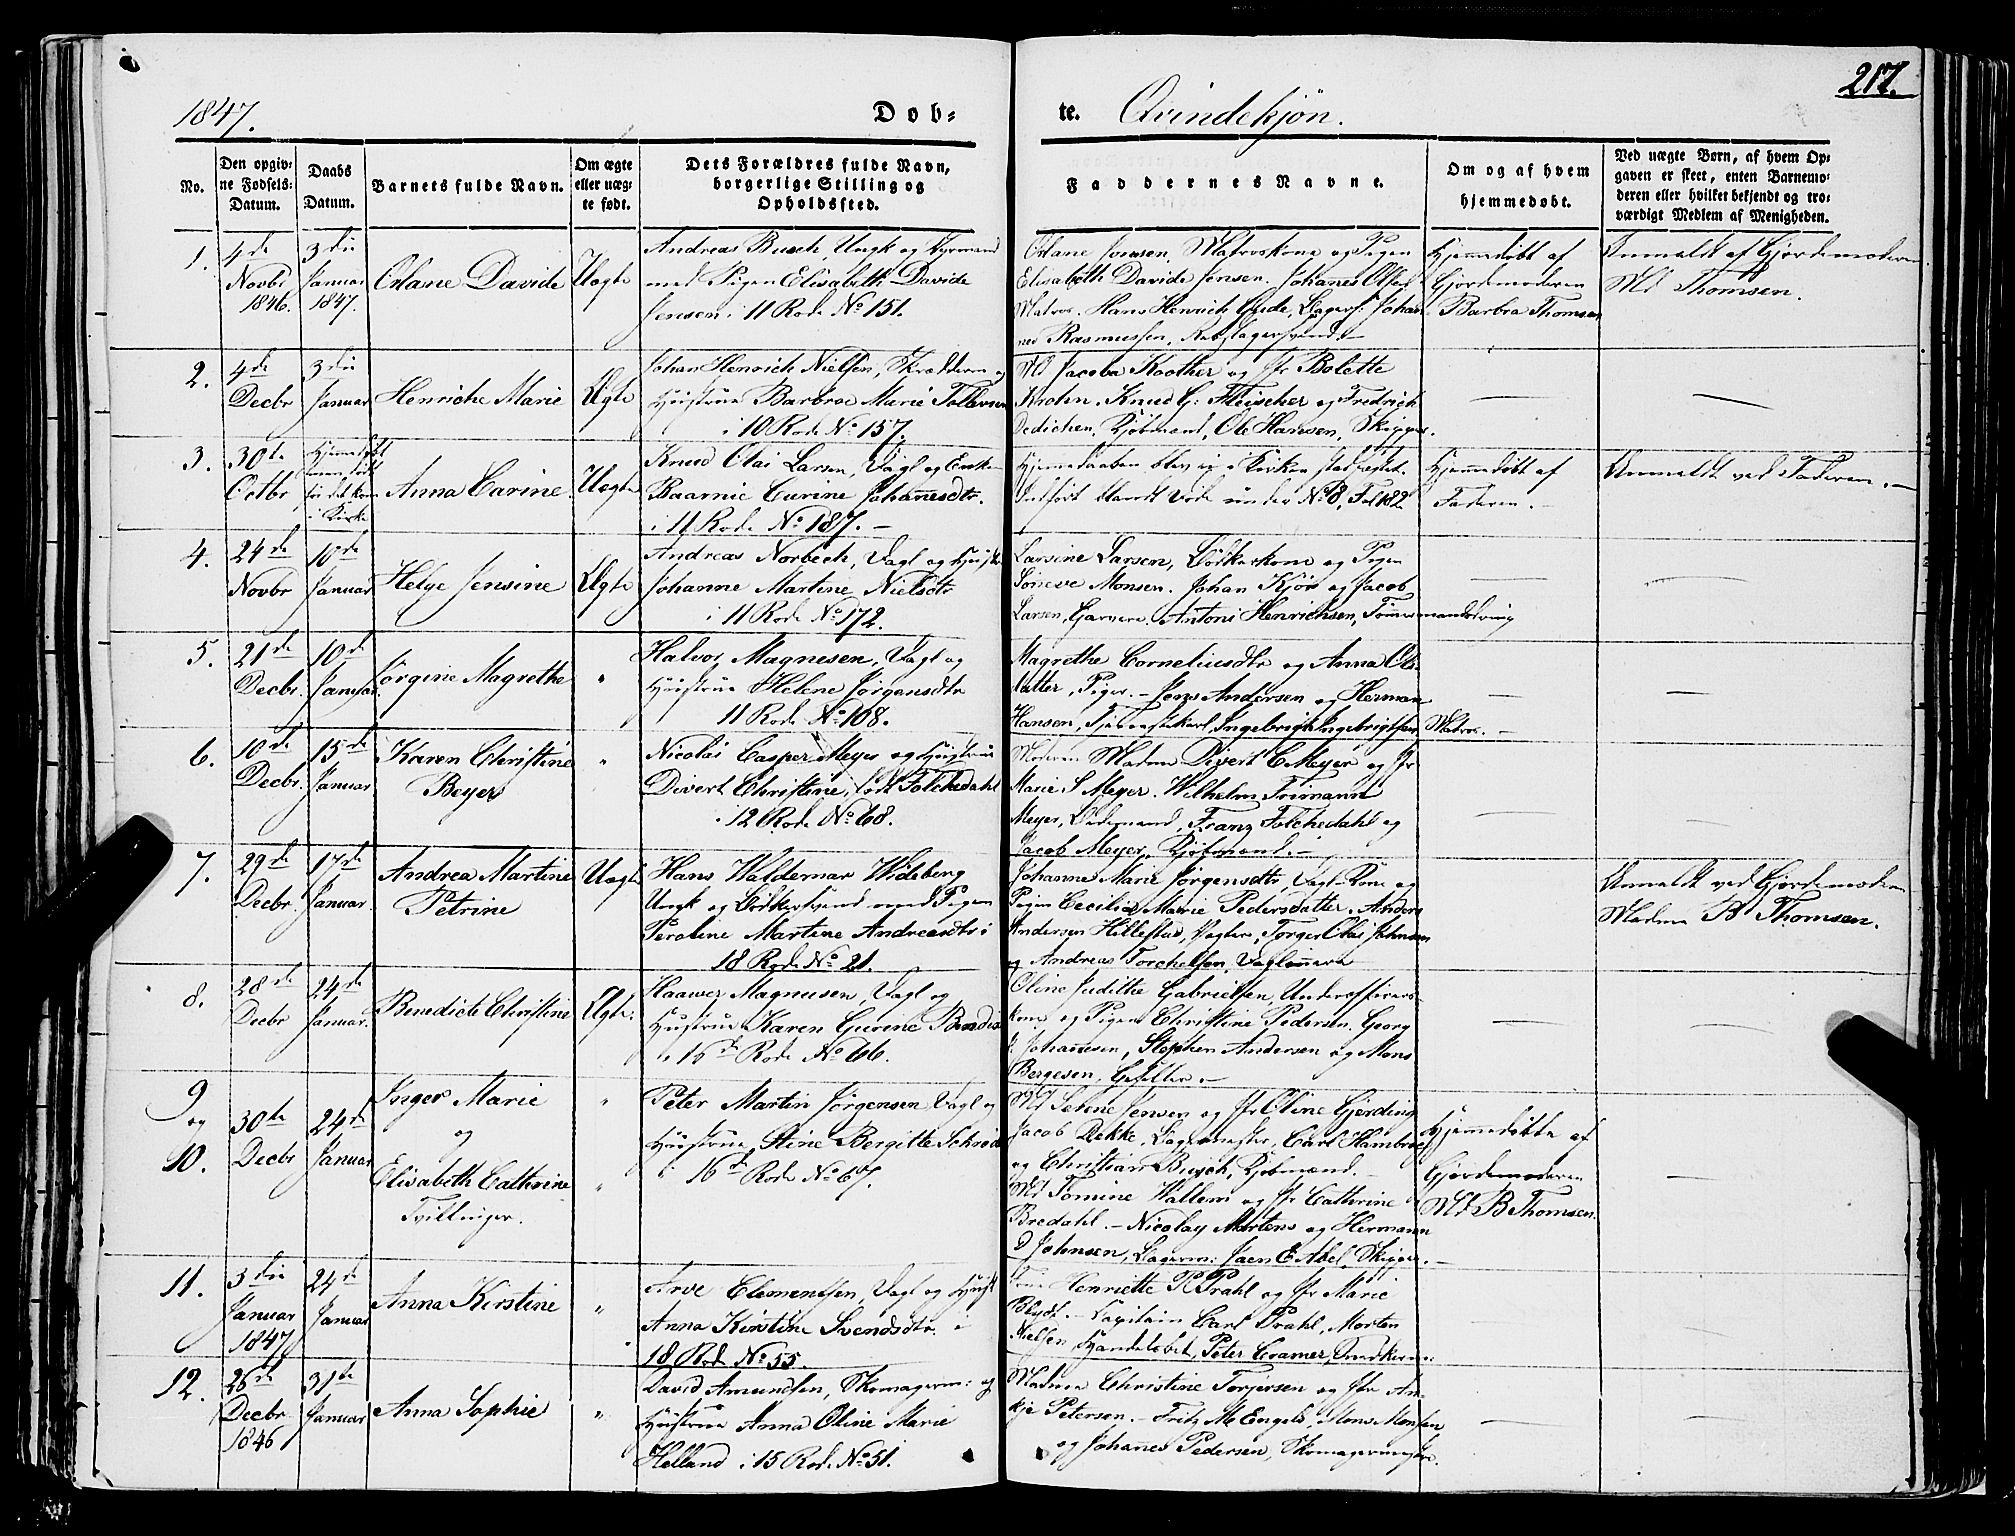 217.
1847.
Døb-
te. Qvindekjøn.
No.
Den opgiv-
ne Fødsels-
Datum.
Daabs
Datum.
Barnets fulde Navn.
Om ægte
eller uæg-
te født.
Dets Forældres fulde Navn,
borgerlige Stilling og
Opholdssted.
Faddernes Navne.
Om og af hvem
hjemmedøbt.
Ved uægte Børn, af hvem Op-
gaven er skeet, enten Barnemo-
deren eller hvilket bekjendt og tro-
værdigt Medlem af Menigheden.
1.
4de
Novbr
1846.
3die
Januar
1847.
Olane Davide
Uægte
Andreas Busch, Ungk og Styrmand
med Pigen Elisabeth Davide
Jensen i 11 Rode No 151.
Olane Jonsen, Matroskone og Pigen
Elisabeth Davide Jensen. Johannes Olsen
Matros. Hans Henrich Gude, Bagers: Johan-
nes Rasmussen, Rebslagersvend.
Hjemmedøbt af
Gjordemoderen
Barbra Thomsen
Anmeldt af Gjordemoderen
Md Thomsen.
2.
4de
Decbr
3die
Januar
Henriche Marie
Ægte
Johan Henrich Nielsen, Skrædder og
Hustrue Barbroe Marie Tollevsen
i 10 Rode No 157.
Md Jacoba Koother og Jfr Bolette
Krohn. Knud G: Fleischer og Fredrich
Dedichen, Kjøbmænd, Ole Hansen, Skipper.
3.
30te
Octbr
Hjemmedøbt
men død
før det kom
i Kirke
Anna Carine
Uægte
Knud Olai Larsen, Dagl og Enke
Baarnie Curine Johannesdtr.
i 11 Rode No 187.
Hjemmedaaben blev ei i Kirken stadfæstet.
Indført blandt Døde under No 8, Fol 182.
Hjemmedøbt af
Faderen.
Anmeldt ved Faderen.
4.
24de
Novbr
10de
Januar
Helge Jensine
Ægte
Andreas Norbech, Dagl og Hustr.
Johanne Martine Nielsdtr
i 11 Rode No 172.
Larsine Larsen, Bødkerkone og Pigen
Søneve Monsen. Johan Kjör og Jacob
Larsen, Garvere. Antoni Henrichsen, Tømmermandsdreng
5.
21de
Decbr.
10de
Januar.
Jørgine Magrethe
"
Halvor Magnesen, Dagl og
Hustrue Helene Jørgensdtr
11 Rode No 108.
Magrethe Corneliusdtr og Anna Ols-
datter, Piger. Jens Andersen og Herman
Hansen, Tjenestekarl, Ingebrigt Ingebrigtsen Matros.
6.
10de
Decbr.
15de
Januar
Karen Christine
Beyer
"
Nicolai Casper Meyer og Hustrue
Divert Christine, født Folchedahl
i 12 Rode No 68.
Moderen Madm Divert C Meyer og Jfr
Marie S Meyer. Wilhelm Frimann
Meyer, Franz Folchedahl og
Jacob Meyer, Kjøbmænd.
7.
29de
Decbr.
17de
Januar.
Andrea Martine
Petrine
Uægte
Hans Waldemar Wideberg
Ungk og Bødkersvend med Pigen
Peroline Martine Andreasdtr i
18 Rode No 21.
Johanne Marie Jørgensdtr, Dagl Kone og
Pigen Cecilia Marie Pedersdatter. Anders
Andersen Hillestad, Vægter, Torger Olai Johnsen
og Andreas Torchelsen, Daglønnere
Anmeldt ved Gjordemoderen
Madm B Thomsen.
8.
28de
Decbr
24de
Januar.
Benedicte Christine
Ægte.
Haaver Magnusen, Dagl og
Hustrue Karen Gurine Bendix
i 15de Rode No 66.
Oline Judithe Gabrielsen, Underofficers-
kone og Pigen Christine Pedersen. Georg
J. Johannesen, Stephen Andersen og Mons
Bergesen, Geseller.
9
og
10.
30te
Decbr
24de
Januar
Inger Marie
og
Elisabeth Cathrine
Tvillinger.
"
"
Peter Martin Jørgensen, Dagl og
Hustrue, Stine Bergitte Schrøder
i 16de Rode No 67.
Md Selene Jensen og Jfr Oline Gjerding
Jacob Dekke, Bagermester, Carl Hambroe
og Christian Busch, Kjøbmænd.
Md Tomine Willems og Jfr Cathrine
Bredahl. Nicolay Martens og Hermann
D Johnsen, Bagerm: Jaen E Abel, Skipper.
Hjemmedøbte af
Gjordemoderen
Md B Thomsen.
11.
3die
Januar
1847
24de
Januar
Anna Kirstine
"
Arve Clemensen, Dagl og Hust
Anna Kirstine Svendsdtr. i
18 Rod. No 55.
Frue Henriette R Prahl og Jfr Marie
Blydt. Capitain Carl Prahl, Morten
Nielsen, Handelsbet, Peter Cramer,
12.
26de
Decbr
1846
31te
Januar
Anna Sophie
"
David Amundsen, Skomagerm: og
Hustrue Anna Oline Marie
Helland i 15 Rode No 51.
Madm Christine Torjersen og Jfr An-
kje Petersen. Fritz M Engels, Mons Monsen
og Johannes Pedersen, Skomagermestre.